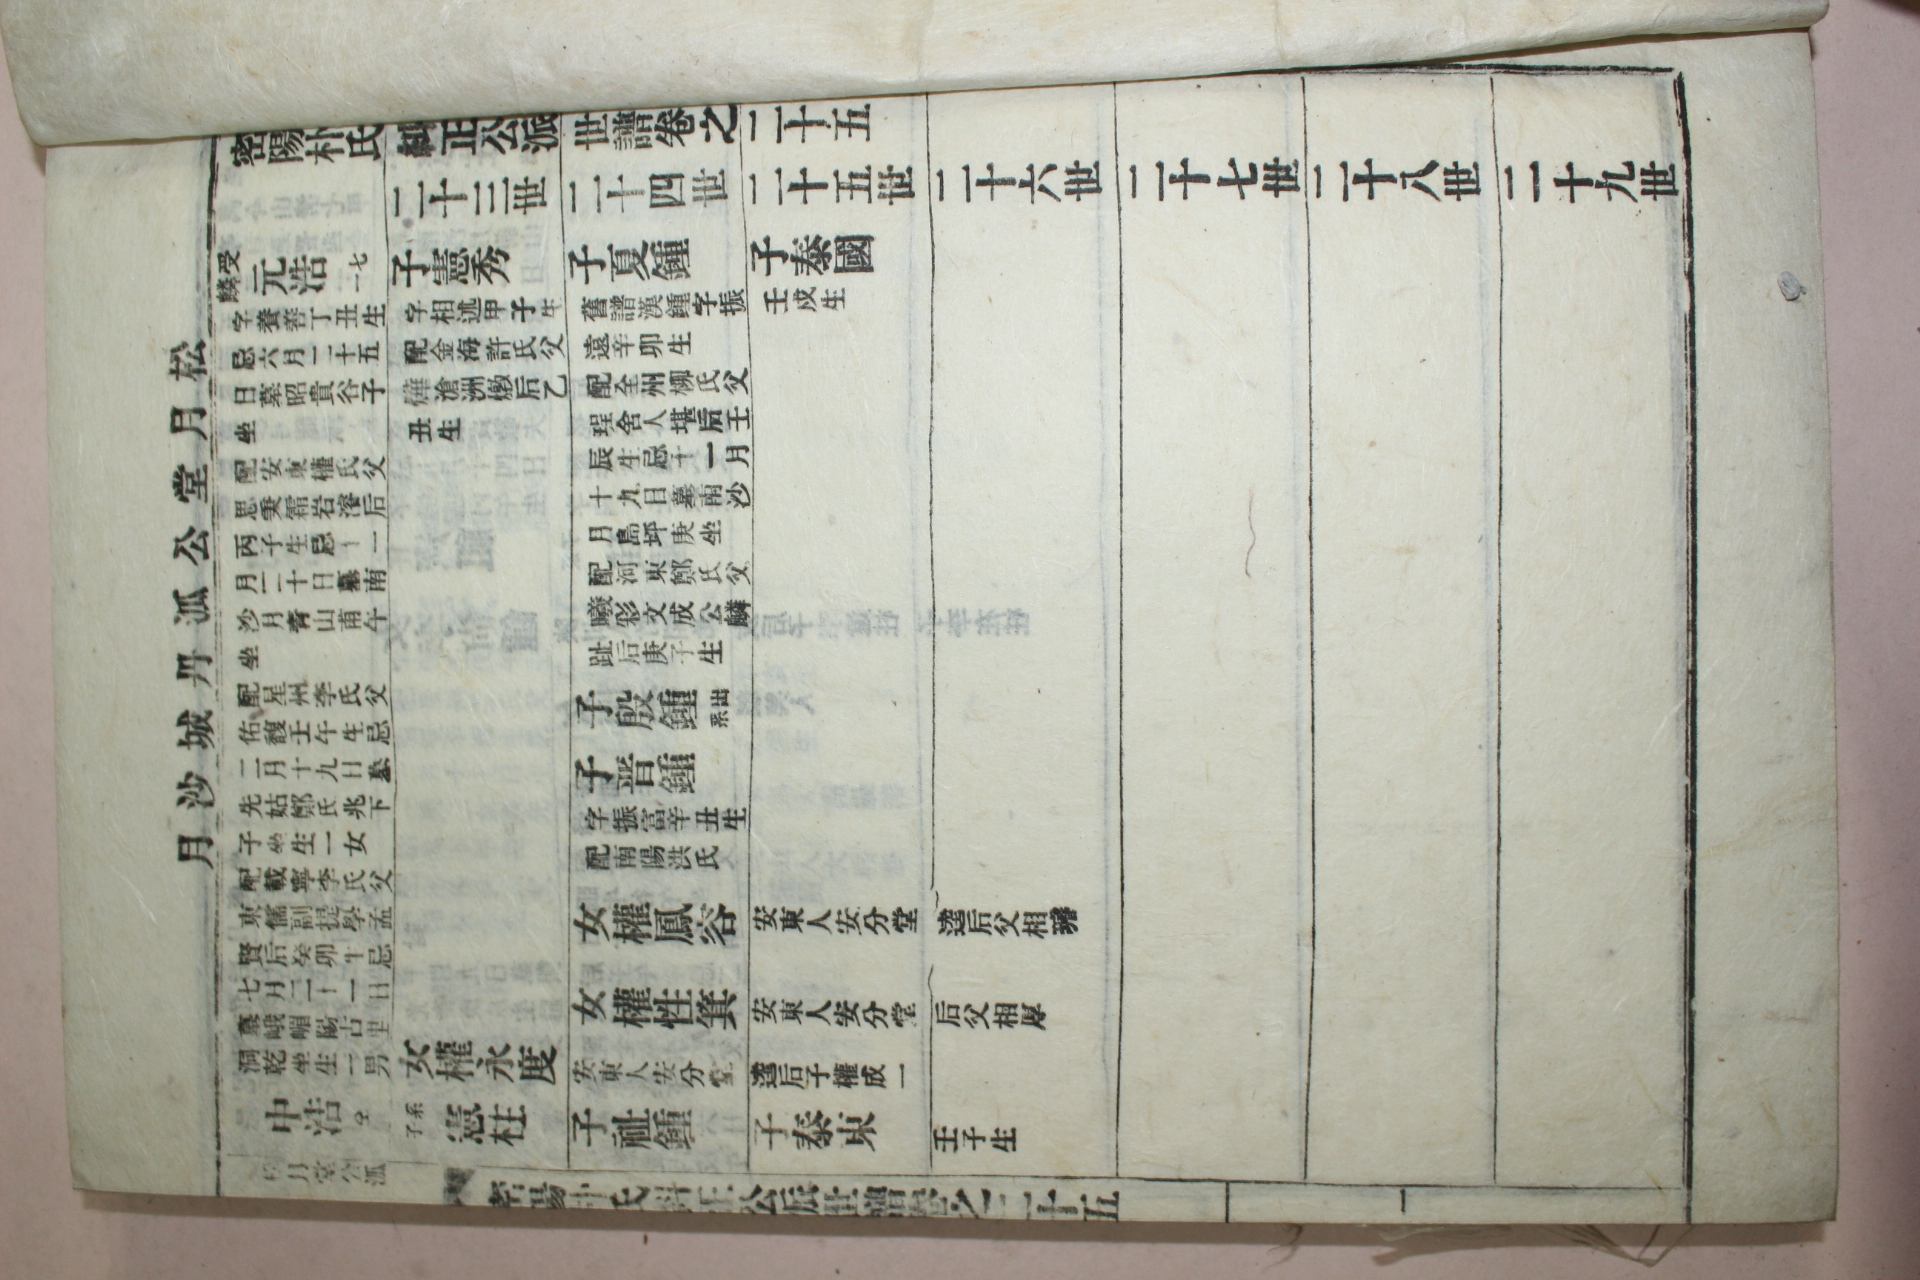 密陽朴氏糾正公派世譜卷之二十五
松月堂公派丹城沙月
二十三世
二十四世
二十五世
二十六世
二十七世
二十八世
二十九世
受麟
元浩
一七
字養善丁丑生
忌六月二十五
日墓昭貴谷子
坐
配安東權氏父
思夷霜岩濬后
丙子生忌十一
月二十日墓南
沙月齊山甫午
坐
配星州李氏父
佑馥壬午生忌
二月十九日墓
先姑鄭氏兆下
子坐生一女
配載寧李氏父
東儒副提學孟
賢后癸卯生忌
七月二十一日
墓峨嵋陽古里
洞乾坐生一男
中浩
子憲秀
字相述甲子生
配金海許氏父
滄洲燉后乙
丑生
女權永度
系子
憲柱
子夏鍾
舊譜漢鍾字振
遠辛卯生
配全州柳氏父
珵舍人堪后壬
辰生忌十一月
十九日墓南沙
月島坪庚坐
配河東鄭氏父
曦彩文成公麟
趾后庚子生
子殷鍾
出系
子晋鍾
字振富辛丑生
配南陽洪氏
女權鳳容
女權性箕
安東人安分堂
子祉鍾
子泰國
壬戍生
安東人安分堂
安東人安分堂
逵后子權成一
子泰東
逵后父相
后父相厚
壬子生
松月堂公派
密陽朴氏糾正公派世譜卷之二十五
一